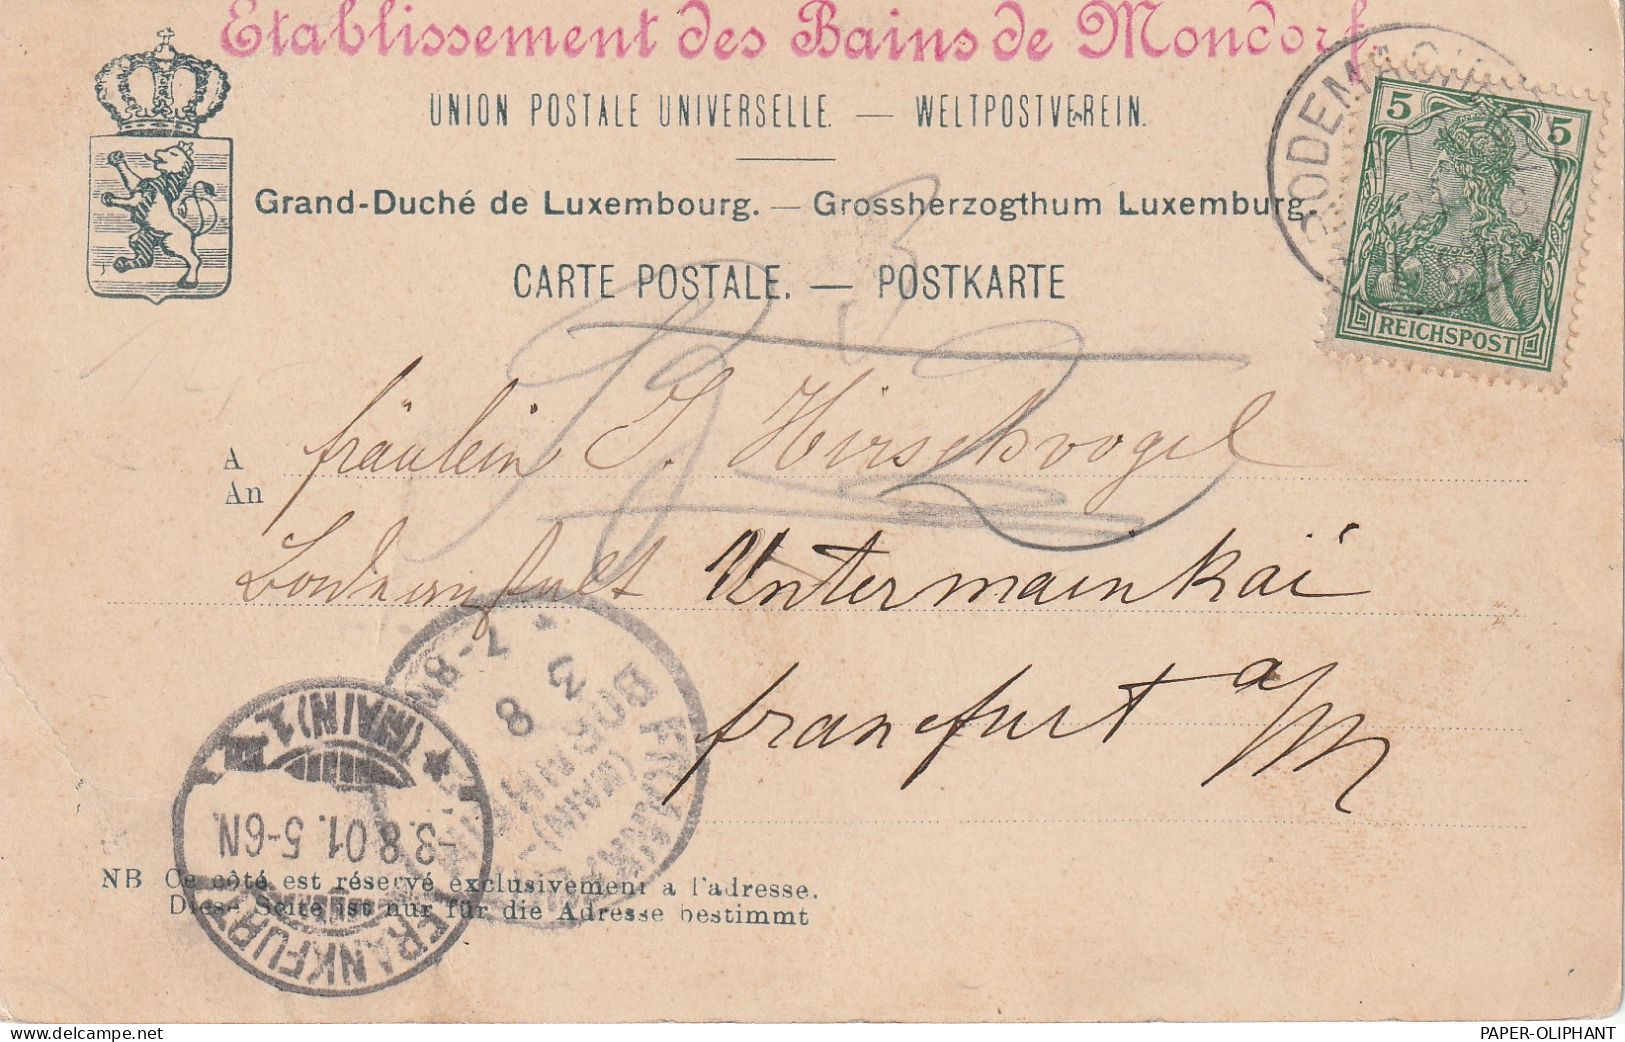 Etablissement des Bains de Mondorf.
UNION POSTALE UNIVERSELLE. — WELTPOSTVEREIN.
Grand-Duché de Luxembourg. — Grossherzogthum Luxemburg.
CARTE POSTALE. — POSTKARTE
RODEMACHERN
5 5
REICHSPOST
A
An
fräulein S. Hirschvogel
Untermainkai
francfurt a/M
7-8N
3 8
BORNHEIM
FRANKFURT
(MAIN)
FRANKFURT
(MAIN) 1.
-3.8.01. 5-6N.
NB Ce côté est réservé exclusivement a l'adresse.
Diese Seite ist nur für die Adresse bestimmt
PAPER-OLIPHANT